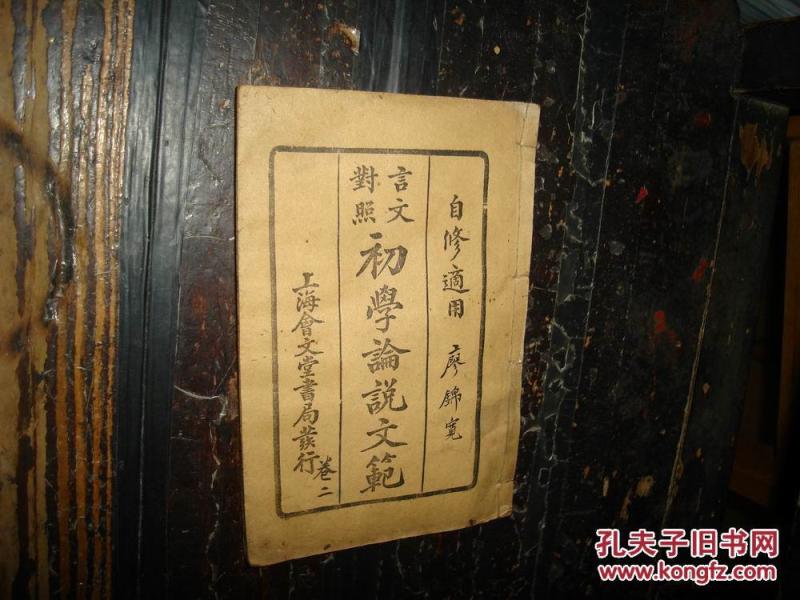 自修適用 廖錦寬
言文對照
初學論說文範
上海會文堂書局發行
卷二
孔夫子旧书网
www.kongfz.com